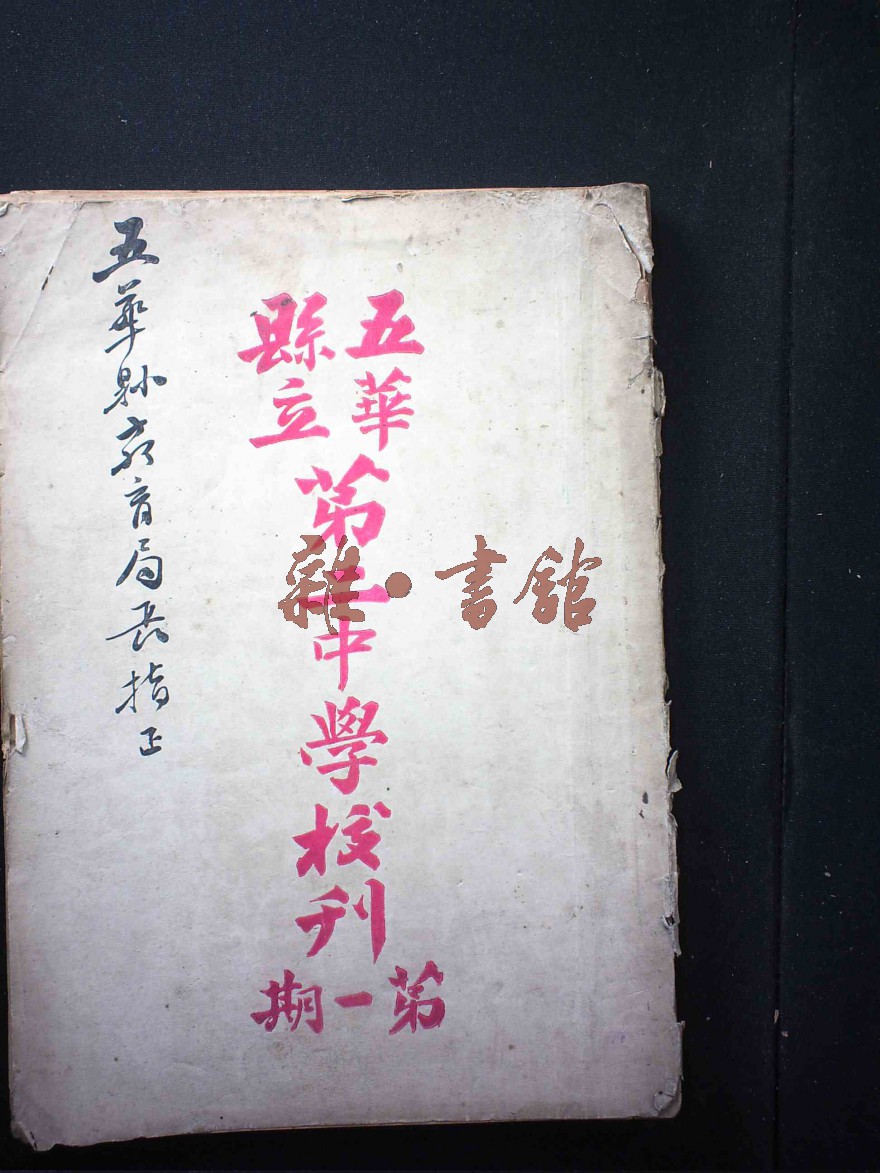 五華
縣立
第二中學校刊
第一期
五華縣教育局長指正
雜·書館